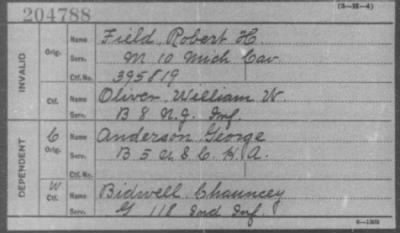 204788 (3-III-4)
INVALID
Orig.
Name Field Robert H
Serv. M 10 Mich Cav.
Ctf. No. 395819
Ctf.
Name Oliver William W.
Serv. B 8 N.J. Inf.
DEPENDENT
C
Orig.
Name Anderson George
Serv. B 5 U.S.C.H.A.
Ctf. No.
W
Ctf.
Name Bidwell Chauncey
Serv. G 118 Ind Inf.